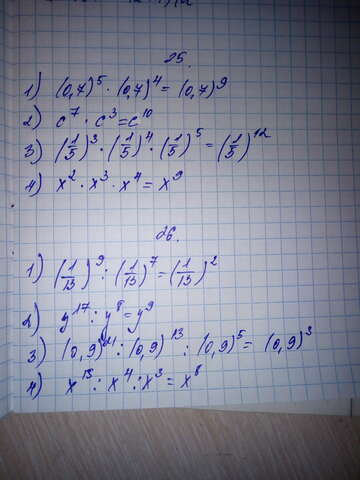 25.
1) (0,7)⁵ · (0,7)⁴ = (0,7)⁹
2) c⁷ · c³ = c¹⁰
3) (1/5)³ · (1/5)⁴ · (1/5)⁵ = (1/5)¹²
4) x² · x³ · x⁴ = x⁹
26.
1) (1/13)⁹ : (1/13)⁷ = (1/13)²
2) y¹⁷ : y⁸ = y⁹
3) (0,9)²¹ : (0,9)¹³ : (0,9)⁵ = (0,9)³
4) x¹⁵ : x⁴ : x³ = x⁸